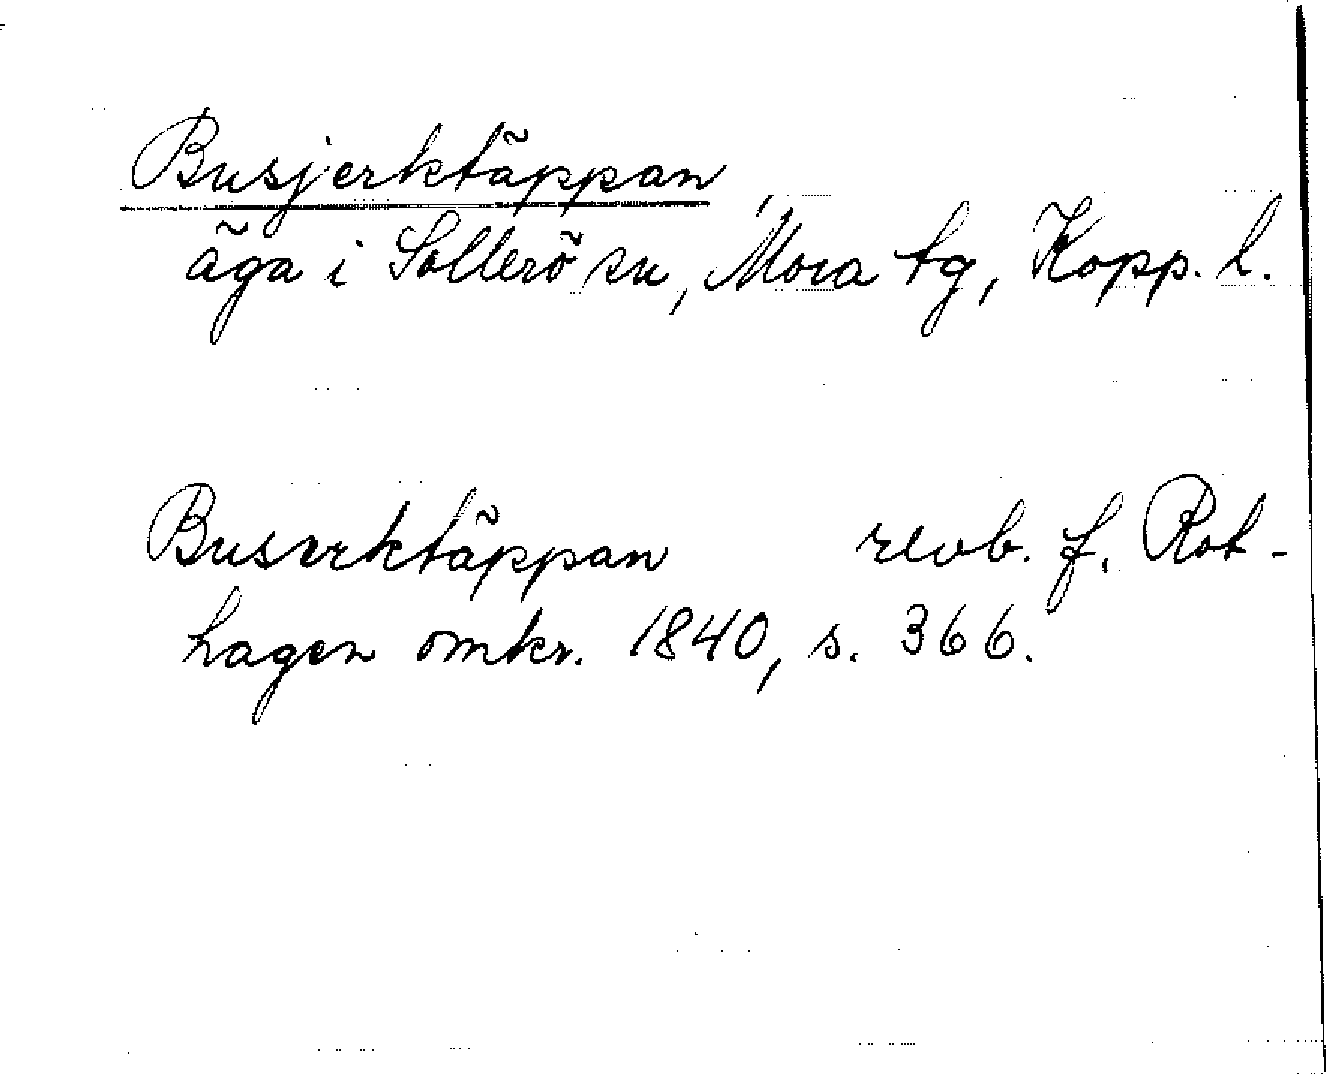 Busjerktäppan
äga i Sollerö sn, Mora tg, Kopp. l.
Buserktäppan revb. f. Rot-
hagen omkr. 1840, s. 366.